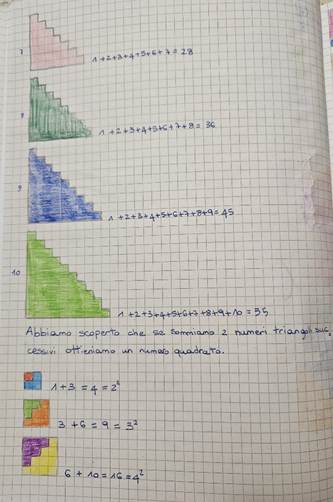 7
1+2+3+4+5+6+7=28
8
1+2+3+4+5+6+7+8=36
9
1+2+3+4+5+6+7+8+9=45
10
1+2+3+4+5+6+7+8+9+10=55
Abbiamo scoperto che se sommiamo 2 numeri triangoli suc
cessivi otteniamo un numero quadrato.
1+3=4=2²
3+6=9=3²
6+10=16=4²